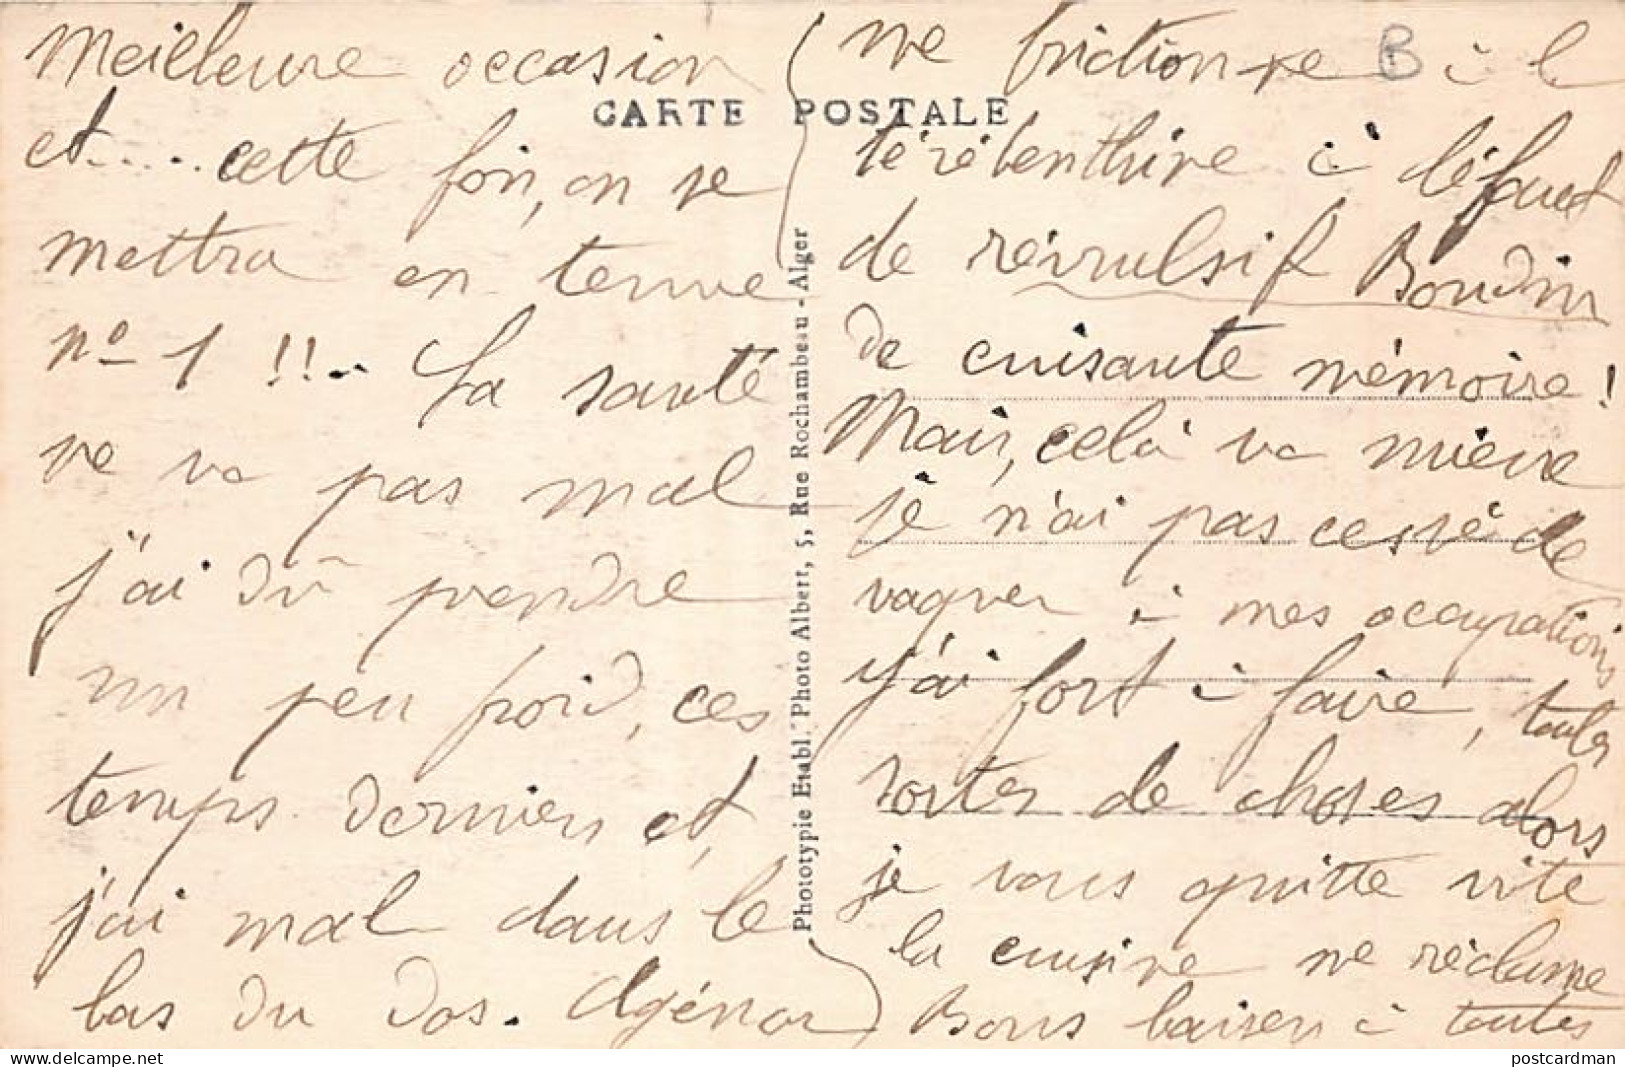 meilleure occasion
et.... cette fois, on se
mettra en tenue
nº 1 !!.. La santé
ne va pas mal
j'ai dû prendre
un peu froid, ces
temps derniers et,
j'ai mal dans le
bas du dos. Agénor
CARTE POSTALE
Phototypie Etabl. Photo Albert, 5, Rue Rochambeau - Alger
me frictionne à l
B
térébenthine à défaut
de révulsif Boudin
de cuisante mémoire !
Mais, celà va mieux
je n'ai pas cessé de
vaquer à mes occupations
j'ai fort à faire, toutes
sortes de choses alors
je vous quitte vite
la cuisine me réclame
Bons baisers à toutes
postcardman